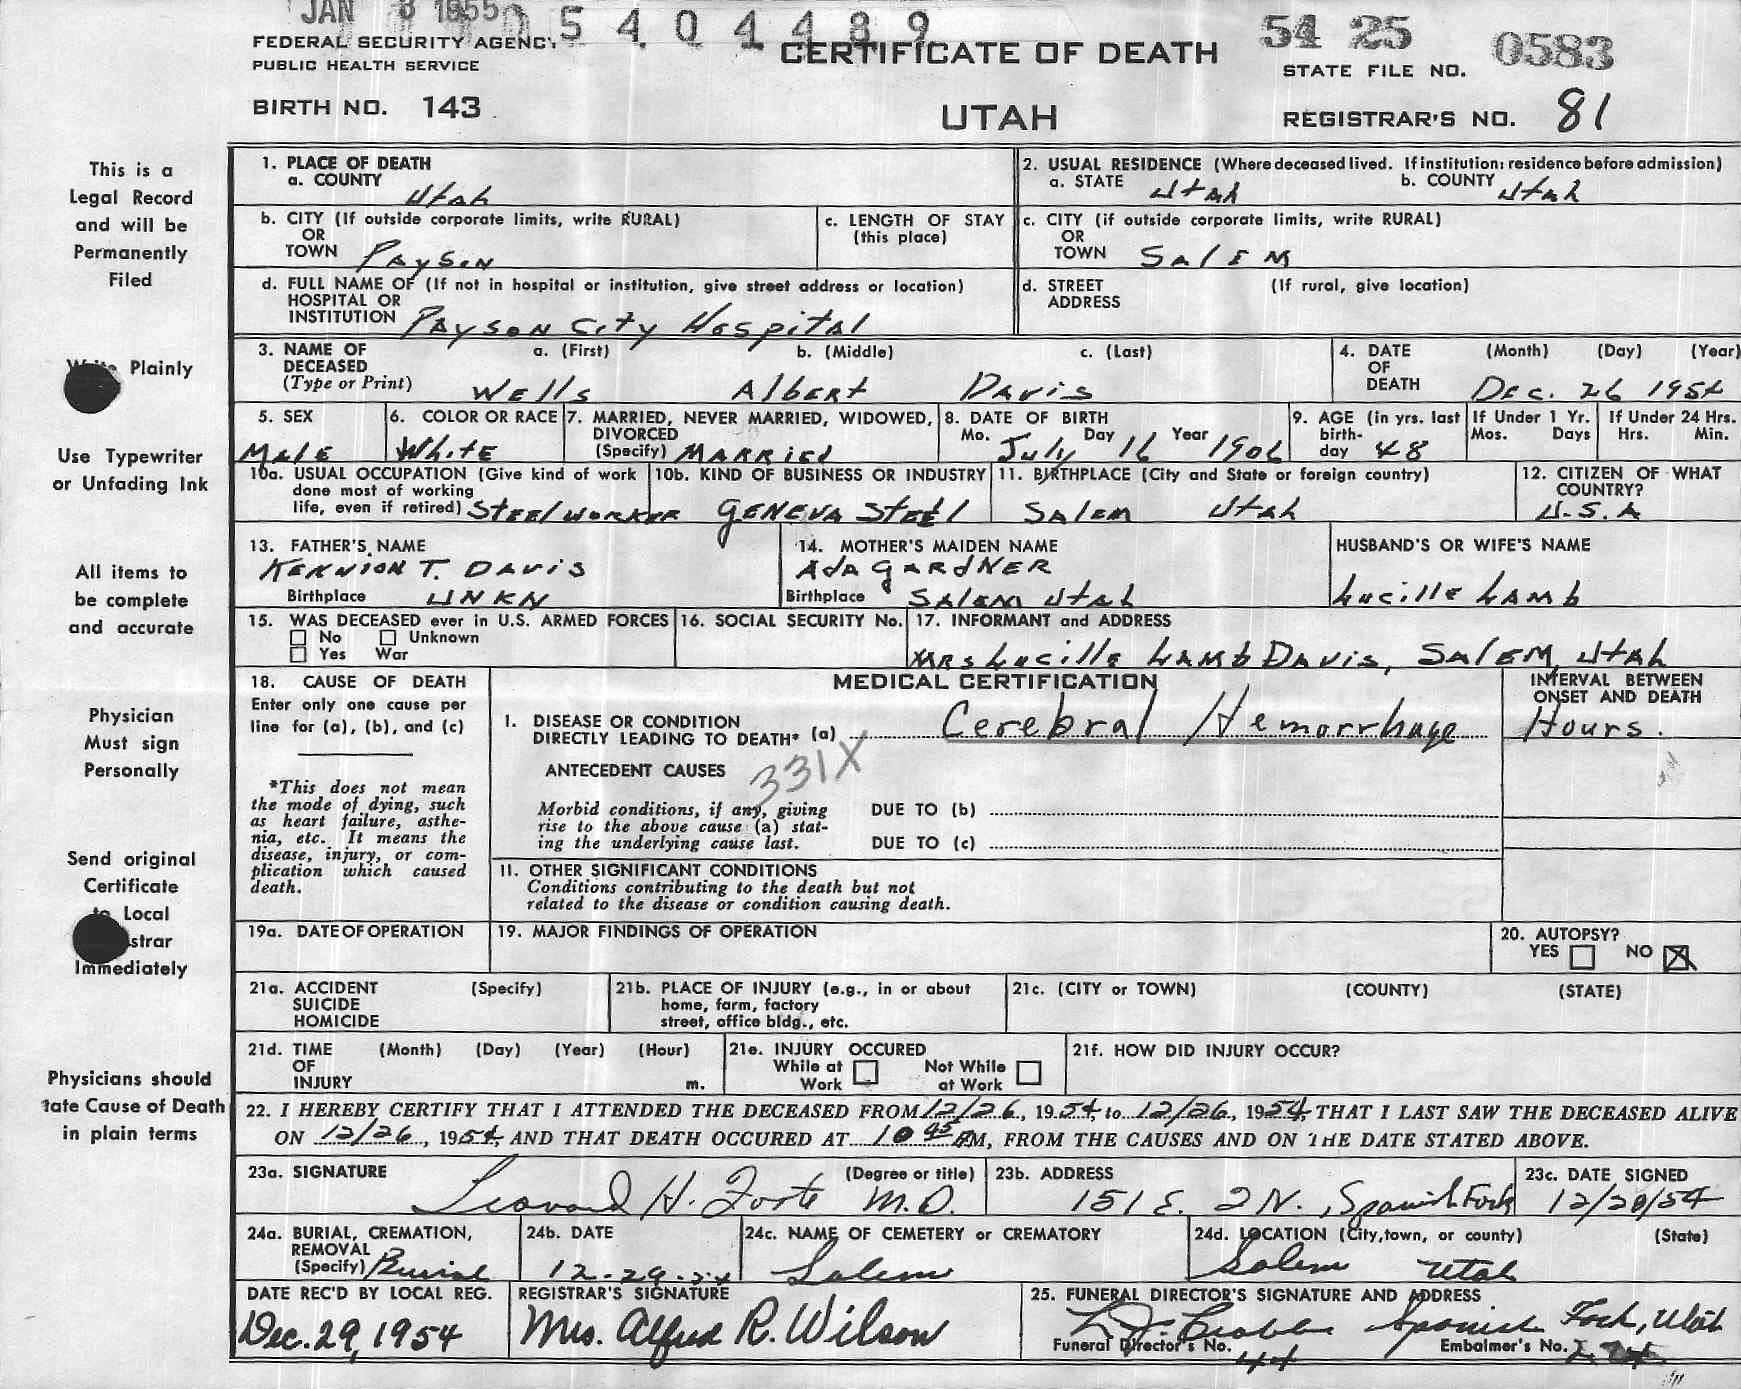 JAN 8 1955
5 4 0 4 4 8 9
FEDERAL SECURITY AGENCY
PUBLIC HEALTH SERVICE
CERTIFICATE OF DEATH
54 25 0583
STATE FILE NO.
BIRTH NO. 143
UTAH
REGISTRAR'S NO. 81
This is a
Legal Record
and will be
Permanently
Filed
Write Plainly
Use Typewriter
or Unfading Ink
All items to
be complete
and accurate
Physician
Must sign
Personally
Send original
Certificate
to Local
strar
Immediately
Physicians should
tate Cause of Death
in plain terms
1. PLACE OF DEATH
a. COUNTY Utah
2. USUAL RESIDENCE (Where deceased lived. If institution: residence before admission)
a. STATE Utah b. COUNTY Utah
b. CITY (If outside corporate limits, write RURAL)
OR
TOWN Payson
c. LENGTH OF STAY
(this place)
c. CITY (if outside corporate limits, write RURAL)
OR
TOWN Salem
d. FULL NAME OF (If not in hospital or institution, give street address or location)
HOSPITAL OR
INSTITUTION Payson City Hospital
d. STREET (If rural, give location)
ADDRESS
3. NAME OF a. (First) b. (Middle) c. (Last)
DECEASED
(Type or Print) Wells Albert Davis
4. DATE (Month) (Day) (Year)
OF
DEATH Dec. 26 1954
5. SEX
Male
6. COLOR OR RACE
White
7. MARRIED, NEVER MARRIED, WIDOWED,
DIVORCED
(Specify) Married
8. DATE OF BIRTH
Mo. Day Year
July 16 1906
9. AGE (in yrs. last
birth-
day 48
If Under 1 Yr.
Mos. Days
If Under 24 Hrs.
Hrs. Min.
10a. USUAL OCCUPATION (Give kind of work
done most of working
life, even if retired) Steelworker
10b. KIND OF BUSINESS OR INDUSTRY
Geneva Steel
11. BIRTHPLACE (City and State or foreign country)
Salem Utah
12. CITIZEN OF WHAT
COUNTRY?
U.S.A
13. FATHER'S NAME
T. Davis
Birthplace UNKN
14. MOTHER'S MAIDEN NAME
Ada Gardner
Birthplace Salem Utah
HUSBAND'S OR WIFE'S NAME
Lucille Lamb
15. WAS DECEASED ever in U.S. ARMED FORCES
No Unknown
Yes War
16. SOCIAL SECURITY No.
17. INFORMANT and ADDRESS
Mrs Lucille Lamb Davis, Salem, Utah
18. CAUSE OF DEATH
Enter only one cause per
line for (a), (b), and (c)
*This does not mean
the mode of dying, such
as heart failure, asthe-
nia, etc. It means the
disease, injury, or com-
plication which caused
death.
MEDICAL CERTIFICATION
INTERVAL BETWEEN
ONSET AND DEATH
I. DISEASE OR CONDITION
DIRECTLY LEADING TO DEATH* (a) Cerebral Hemorrhage
Hours.
ANTECEDENT CAUSES
331X
Morbid conditions, if any, giving
rise to the above cause (a) stat-
ing the underlying cause last.
DUE TO (b)
DUE TO (c)
II. OTHER SIGNIFICANT CONDITIONS
Conditions contributing to the death but not
related to the disease or condition causing death.
19a. DATE OF OPERATION
19. MAJOR FINDINGS OF OPERATION
20. AUTOPSY?
YES NO X
21a. ACCIDENT (Specify)
SUICIDE
HOMICIDE
21b. PLACE OF INJURY (e.g., in or about
home, farm, factory
street, office bldg., etc.
21c. (CITY or TOWN) (COUNTY) (STATE)
21d. TIME (Month) (Day) (Year) (Hour)
OF
INJURY m.
21e. INJURY OCCURED
While at Not While
Work at Work
21f. HOW DID INJURY OCCUR?
22. I HEREBY CERTIFY THAT I ATTENDED THE DECEASED FROM 12/26, 1954, to 12/26, 1954, THAT I LAST SAW THE DECEASED ALIVE
ON 12/26, 1954, AND THAT DEATH OCCURED AT 10 45 M, FROM THE CAUSES AND ON THE DATE STATED ABOVE.
23a. SIGNATURE (Degree or title)
Leonard H. M.D.
23b. ADDRESS
151 E. 2 N., Spanish Fork
23c. DATE SIGNED
12/28/54
24a. BURIAL, CREMATION,
REMOVAL
(Specify) Burial
24b. DATE
12-29-54
24c. NAME OF CEMETERY or CREMATORY
Salem
24d. LOCATION (City, town, or county) (State)
Salem Utah
DATE REC'D BY LOCAL REG.
Dec. 29, 1954
REGISTRAR'S SIGNATURE
Mrs. Alfred R. Wilson
25. FUNERAL DIRECTOR'S SIGNATURE AND ADDRESS
Spanish Fork, Utah
Funeral Director's No. 44
Embalmer's No.